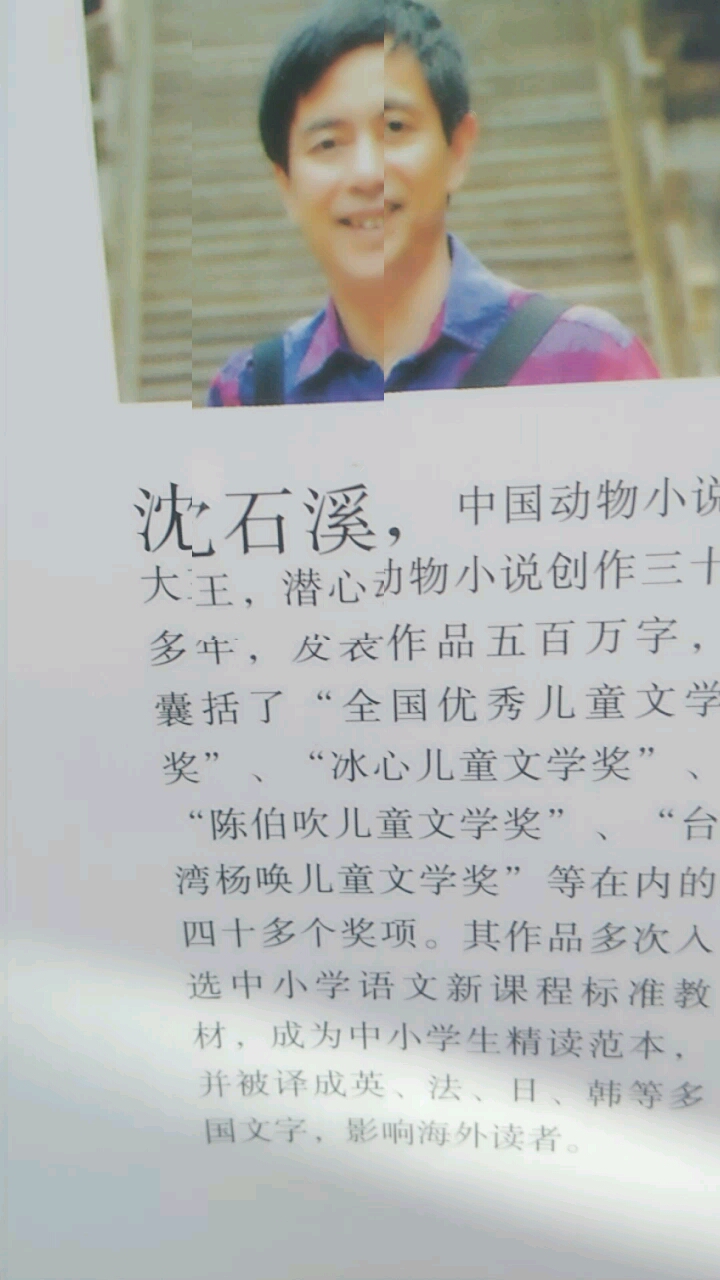 沈石溪，中国动物小说
大王，潜心动物小说创作三十
多年，发表作品五百万字，
囊括了“全国优秀儿童文学
奖”、“冰心儿童文学奖”、
“陈伯吹儿童文学奖”、“台
湾杨唤儿童文学奖”等在内的
四十多个奖项。其作品多次入
选中小学语文新课程标准教
材，成为中小学生精读范本，
并被译成英、法、日、韩等多
国文字，影响海外读者。